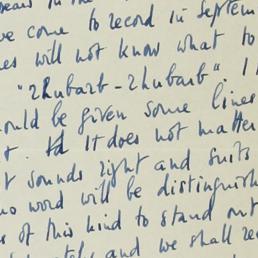 in the
we come to record in Septem
es will not know what to
"Rhubarb - Rhubarb". I
ould be given some lines
t. It does not matter
t sounds right and suits
no word will be distinguish
s of this kind to stand out
and we shall re